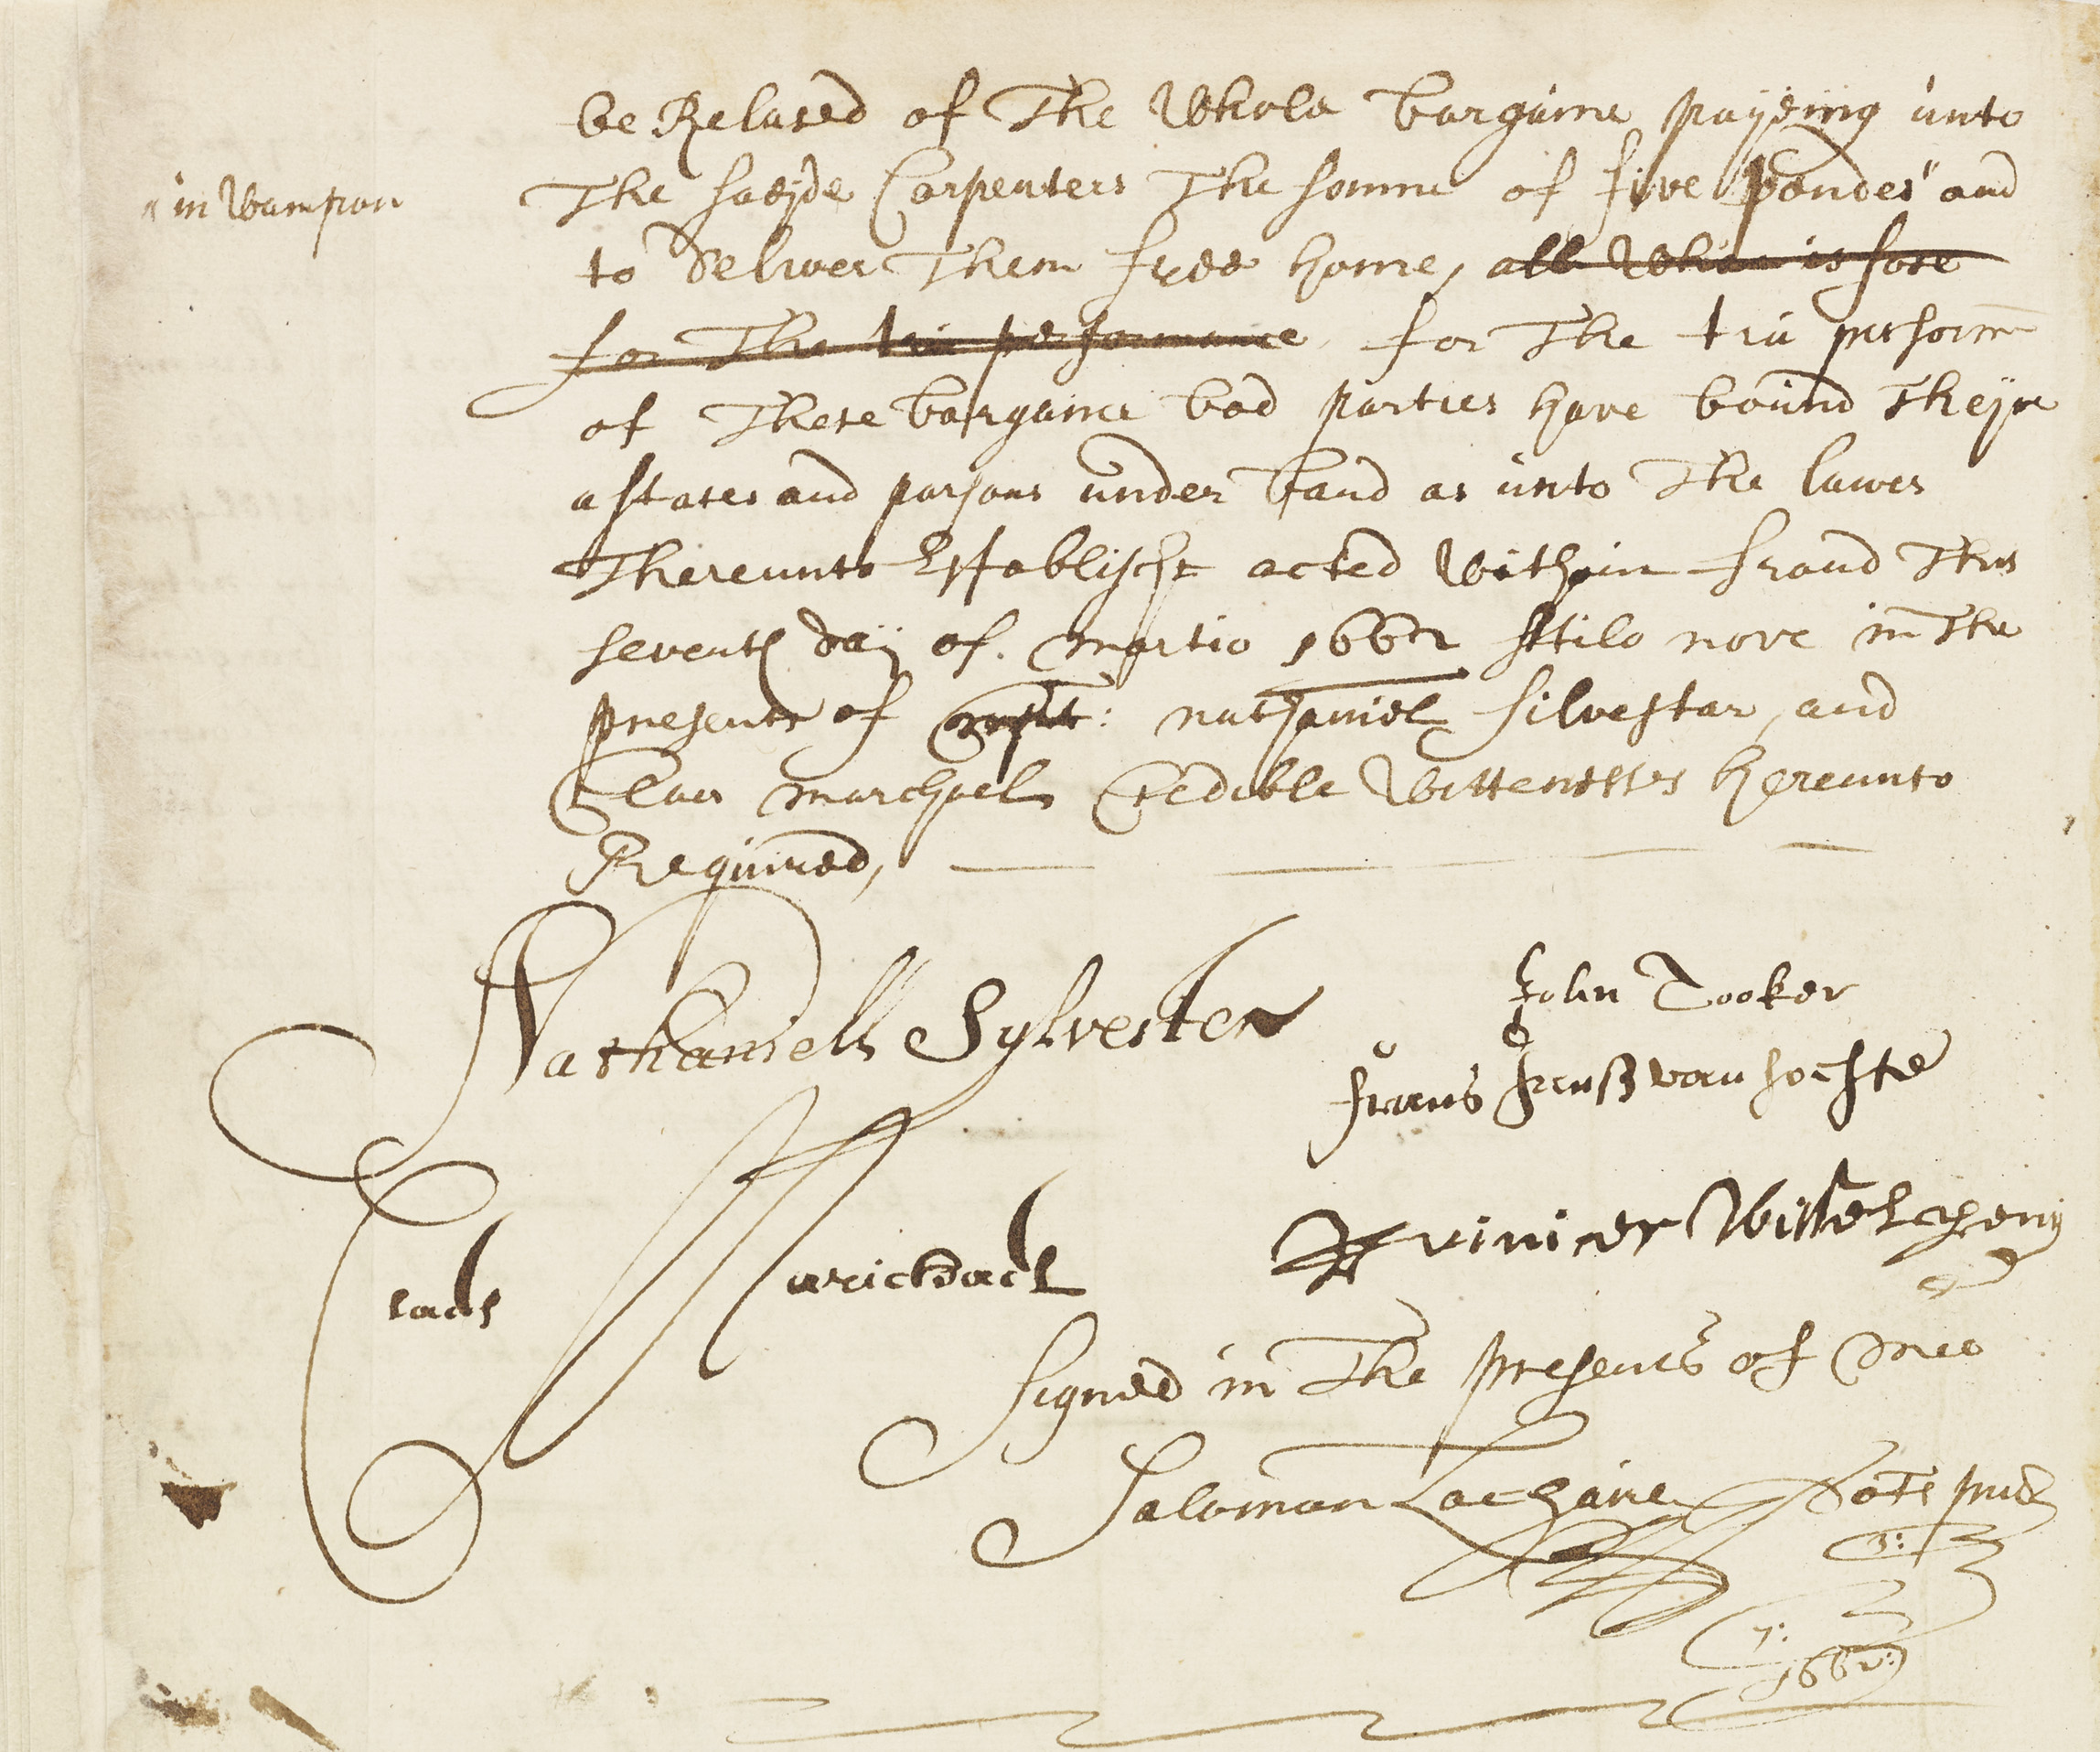 be Relased of The Whole bargaine payeing unto
" in Wampan
The saeyde Carpenters The somme of five pondes " and
to deliver Them free home, all is fore
for The tru performance for The tru perform
of These bargaine bod parties have bound Theyre
astates and parsons under band as unto The lawes
Thereunto Establischt acted Within fraud This
seventh day of. martio 1662 sttilo nove in The
presents of : nathaniel silvestar, and
Claes marchael Credible Wittenesses hereunto
Required,
Nathaniell Sylvester
John Tooker
frans Jansz van hochte
Claes Marichael
Signed in The presents of mee
Salomon Lachaire Nots pub
3:
7:
1662: